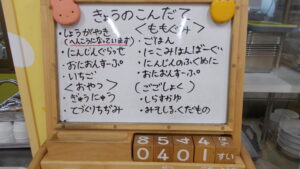 きょうのこんだて
・しょうがやき
(へんこうになっています)
・にんじんぐらっせ
・おにおんすーぷ
・いちご
〈おやつ〉
・ぎゅうにゅう
・てづくりちぢみ
〈ももぐみ〉
・ごはん
・にこみはんばーぐ
・にんじんのふくめに
・おにおんすーぷ
(ごごしょく)
・しらすかゆ
・みそしる・くだもの
8 5 4
0 4 0 1 すい